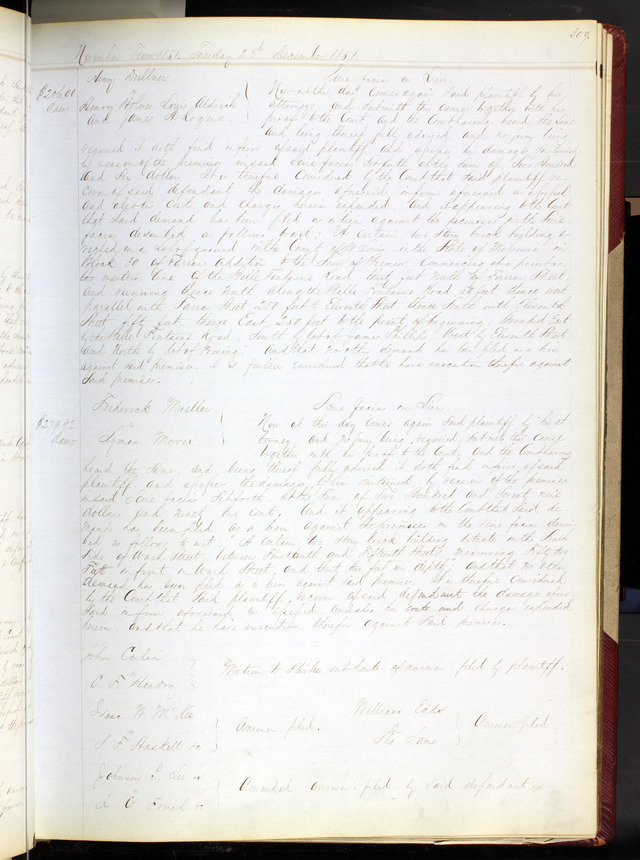 309
November Term 1851. Tuesday 23d December 1851.
Scire facias on Lien.
$206.00
dam
Henry Holmes, Louis Aldrich
and James H.
Now at this day comes again said plaintiff by his
attorney and submits the cause together with his
proofs to the Court and the Court having heard the same
and being thereof fully advised, and no jury being
required it doth find in favor of said plaintiff and assesses the damages sustained
by reason of the premises in said scire facias set forth at the sum of Two Hundred
and Six dollars. It is therefore Considered by the Court that said plaintiff re-
cover of said defendant the damages aforesaid in form aforesaid assessed
and also his Costs and Charges herein expended. And it appearing to the Court
that said demand has been filed as a lien against the premises in the scire
facias described as follows to wit: "A certain two story brick building e-
rected on a lot of ground in the County of St Louis in the State of Missouri in
Block 30 of Farrars Addition to the Town of Bremen. Commencing at a point on
the western line of the Belle Fontaine Road thirty feet North of Farrar Street,
and running thence North along the Belle Fontaine Road 50 feet thence west
parallel with Farrar Street 250 feet to Eleventh Street thence South with Eleventh
Street fifty feet thence East 250 feet to the point of beginning. Bounded East
by Belle Fontaine Road, South by lot of James Phillips, West by Eleventh Street
and North by lot of . And that no other demand has been filed as a lien
against said premises. It is further considered that he have execution therefor against
said premises.
Frederick Mueller
vs
Lyman Mower
Scire facias on Lien.
$279.92
dam
Now at this day comes again said plaintiff by his at
torney, and no jury being required, submits this cause
together with his proofs to the Court, and the Court having
heard the same, and being thereof fully advised it doth find in favor of said
plaintiff and assesses the damages by him sustained by reason of the premises
in said scire facias set forth at the sum of Two Hundred and Seventy nine
dollars and ninety two cents. And it appearing to the Court that said de-
mand has been filed as a lien against the premises in the scire facias descri-
bed as follows to wit: "A Certain two story brick building situate on the South
side of Wash Street between Fourteenth and Fifteenth Streets measuring Fifty
Feet in front on Wash Street, and feet in depth" and that no other
demand has been filed as a lien against said premises. It is therefore Considered
by the Court that said plaintiff recover of said defendant the damages afore-
said in form aforesaid assessed and also his costs and charges expended
herein, and that he have execution therefor against said premises.
John Conlin
vs
C. F. Hendry
Motion to strike out parts of answer filed by plaintiff.
Isaac W. McKee
vs
S. F. Haskell &c
Answer filed.
William Edds
vs
The Same
Answer filed
Johnson J. Lee &c
vs
A. C. French &c
Amended answer filed by said defendants